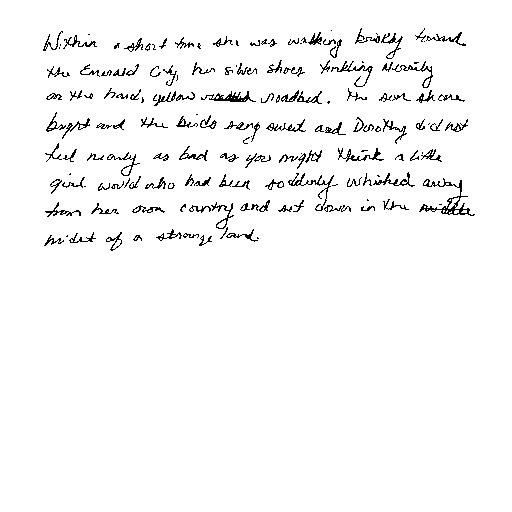 Within a short time she was walking briskly toward
the Emerald City, her silver shoes tinkling merrily
on the hard, yellow roadbed. The sun shone
bright and the birds sang sweet and Dorothy did not
feel nearly as bad as you might think a little
girl would who had been suddenly whisked away
from her own country and set down in the middle
midst of a strange land.